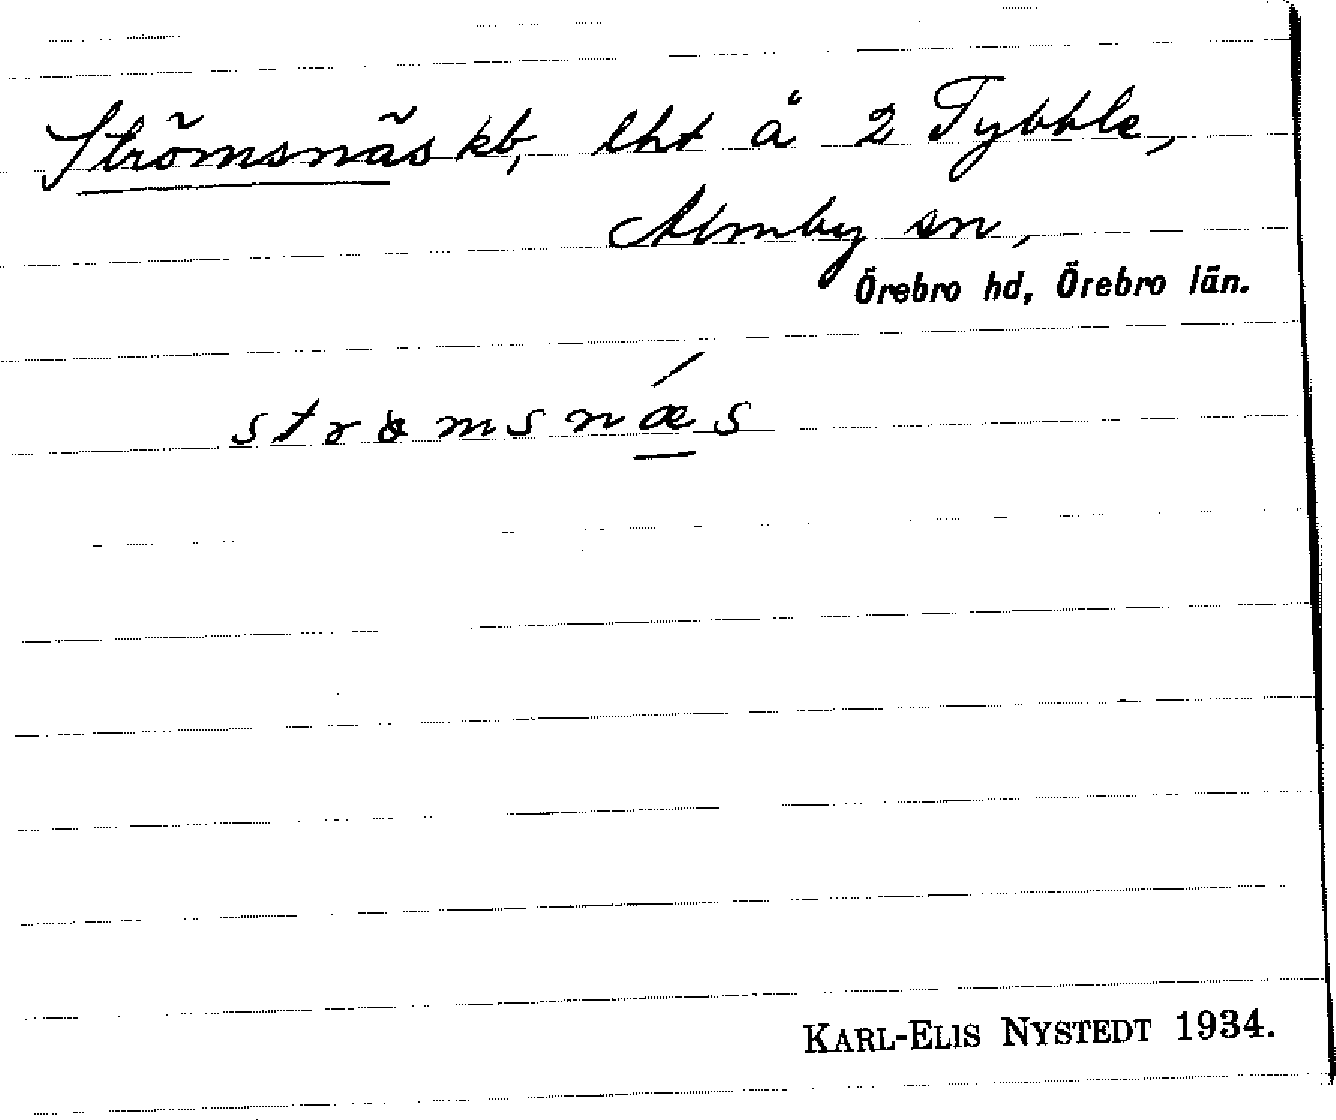 Strömsnäs kb, lht å 2 Tybble,
Almby sn,
Örebro hd, Örebro län.
strømsnǽs
KARL-ELIS NYSTEDT 1934.